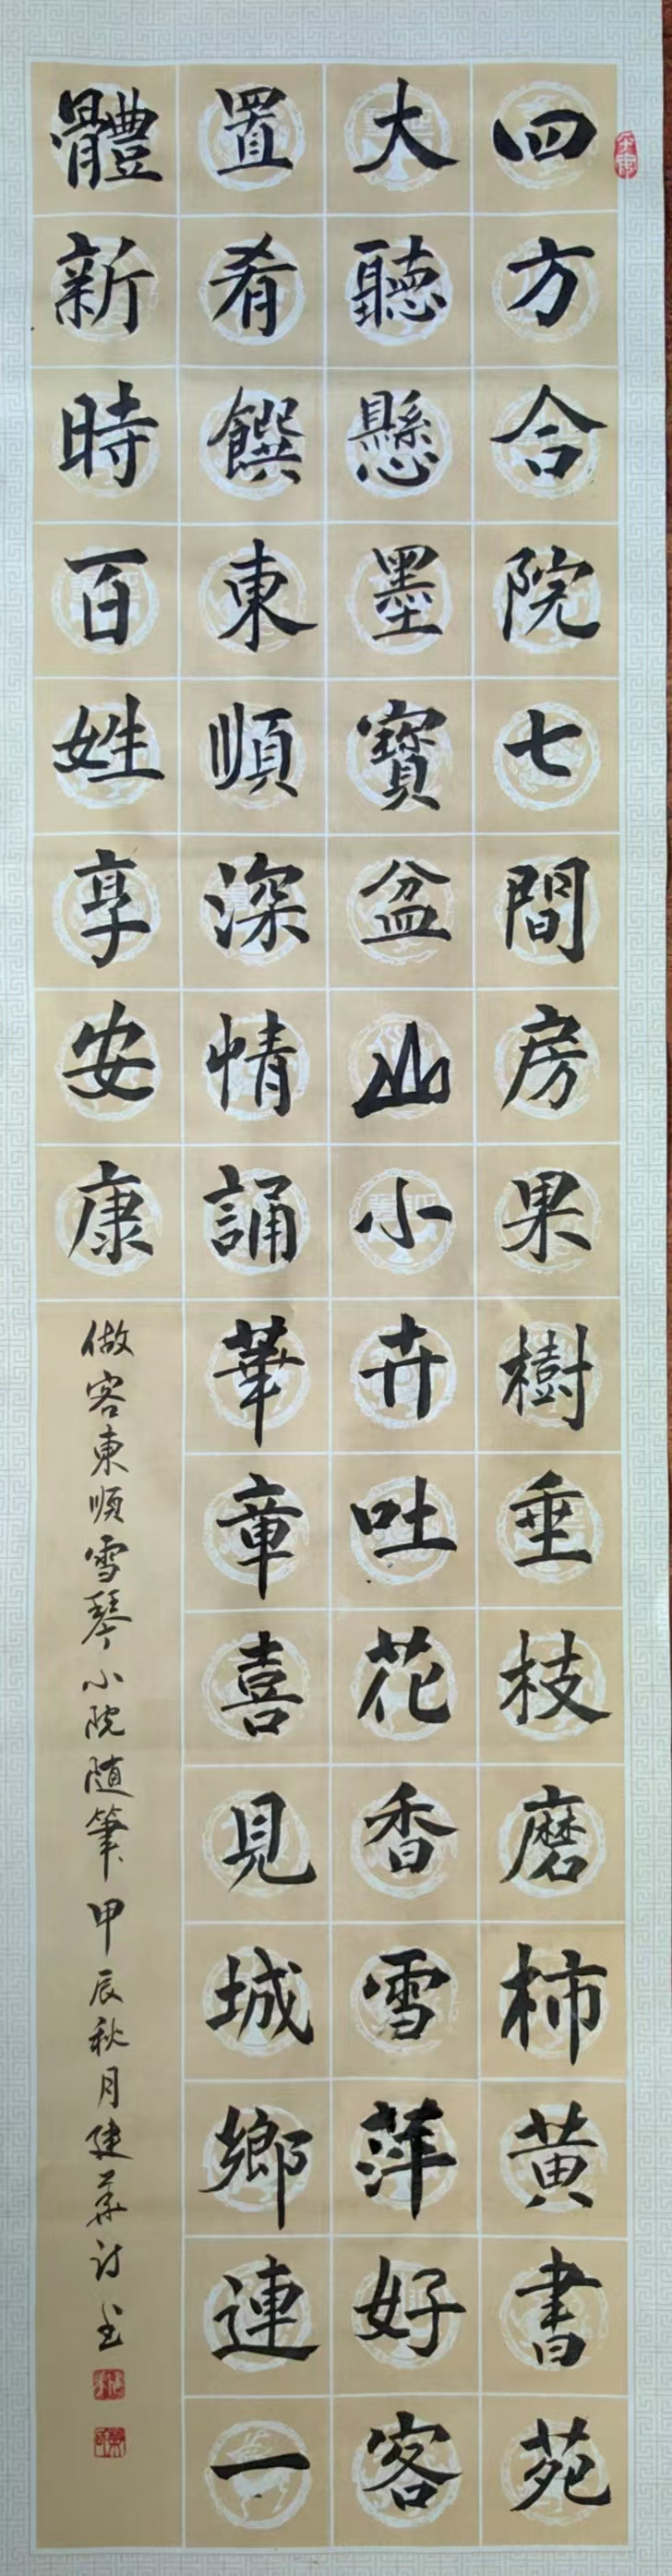 四方合院七間房果樹垂枝磨柿黄書苑
大聽懸墨寶盆山小卉吐花香雪萍好客
置肴饌東順深情誦華章喜見城鄉連一
體新時百姓享安康
做客東順雪琴小院随筆甲辰秋月建華詩書